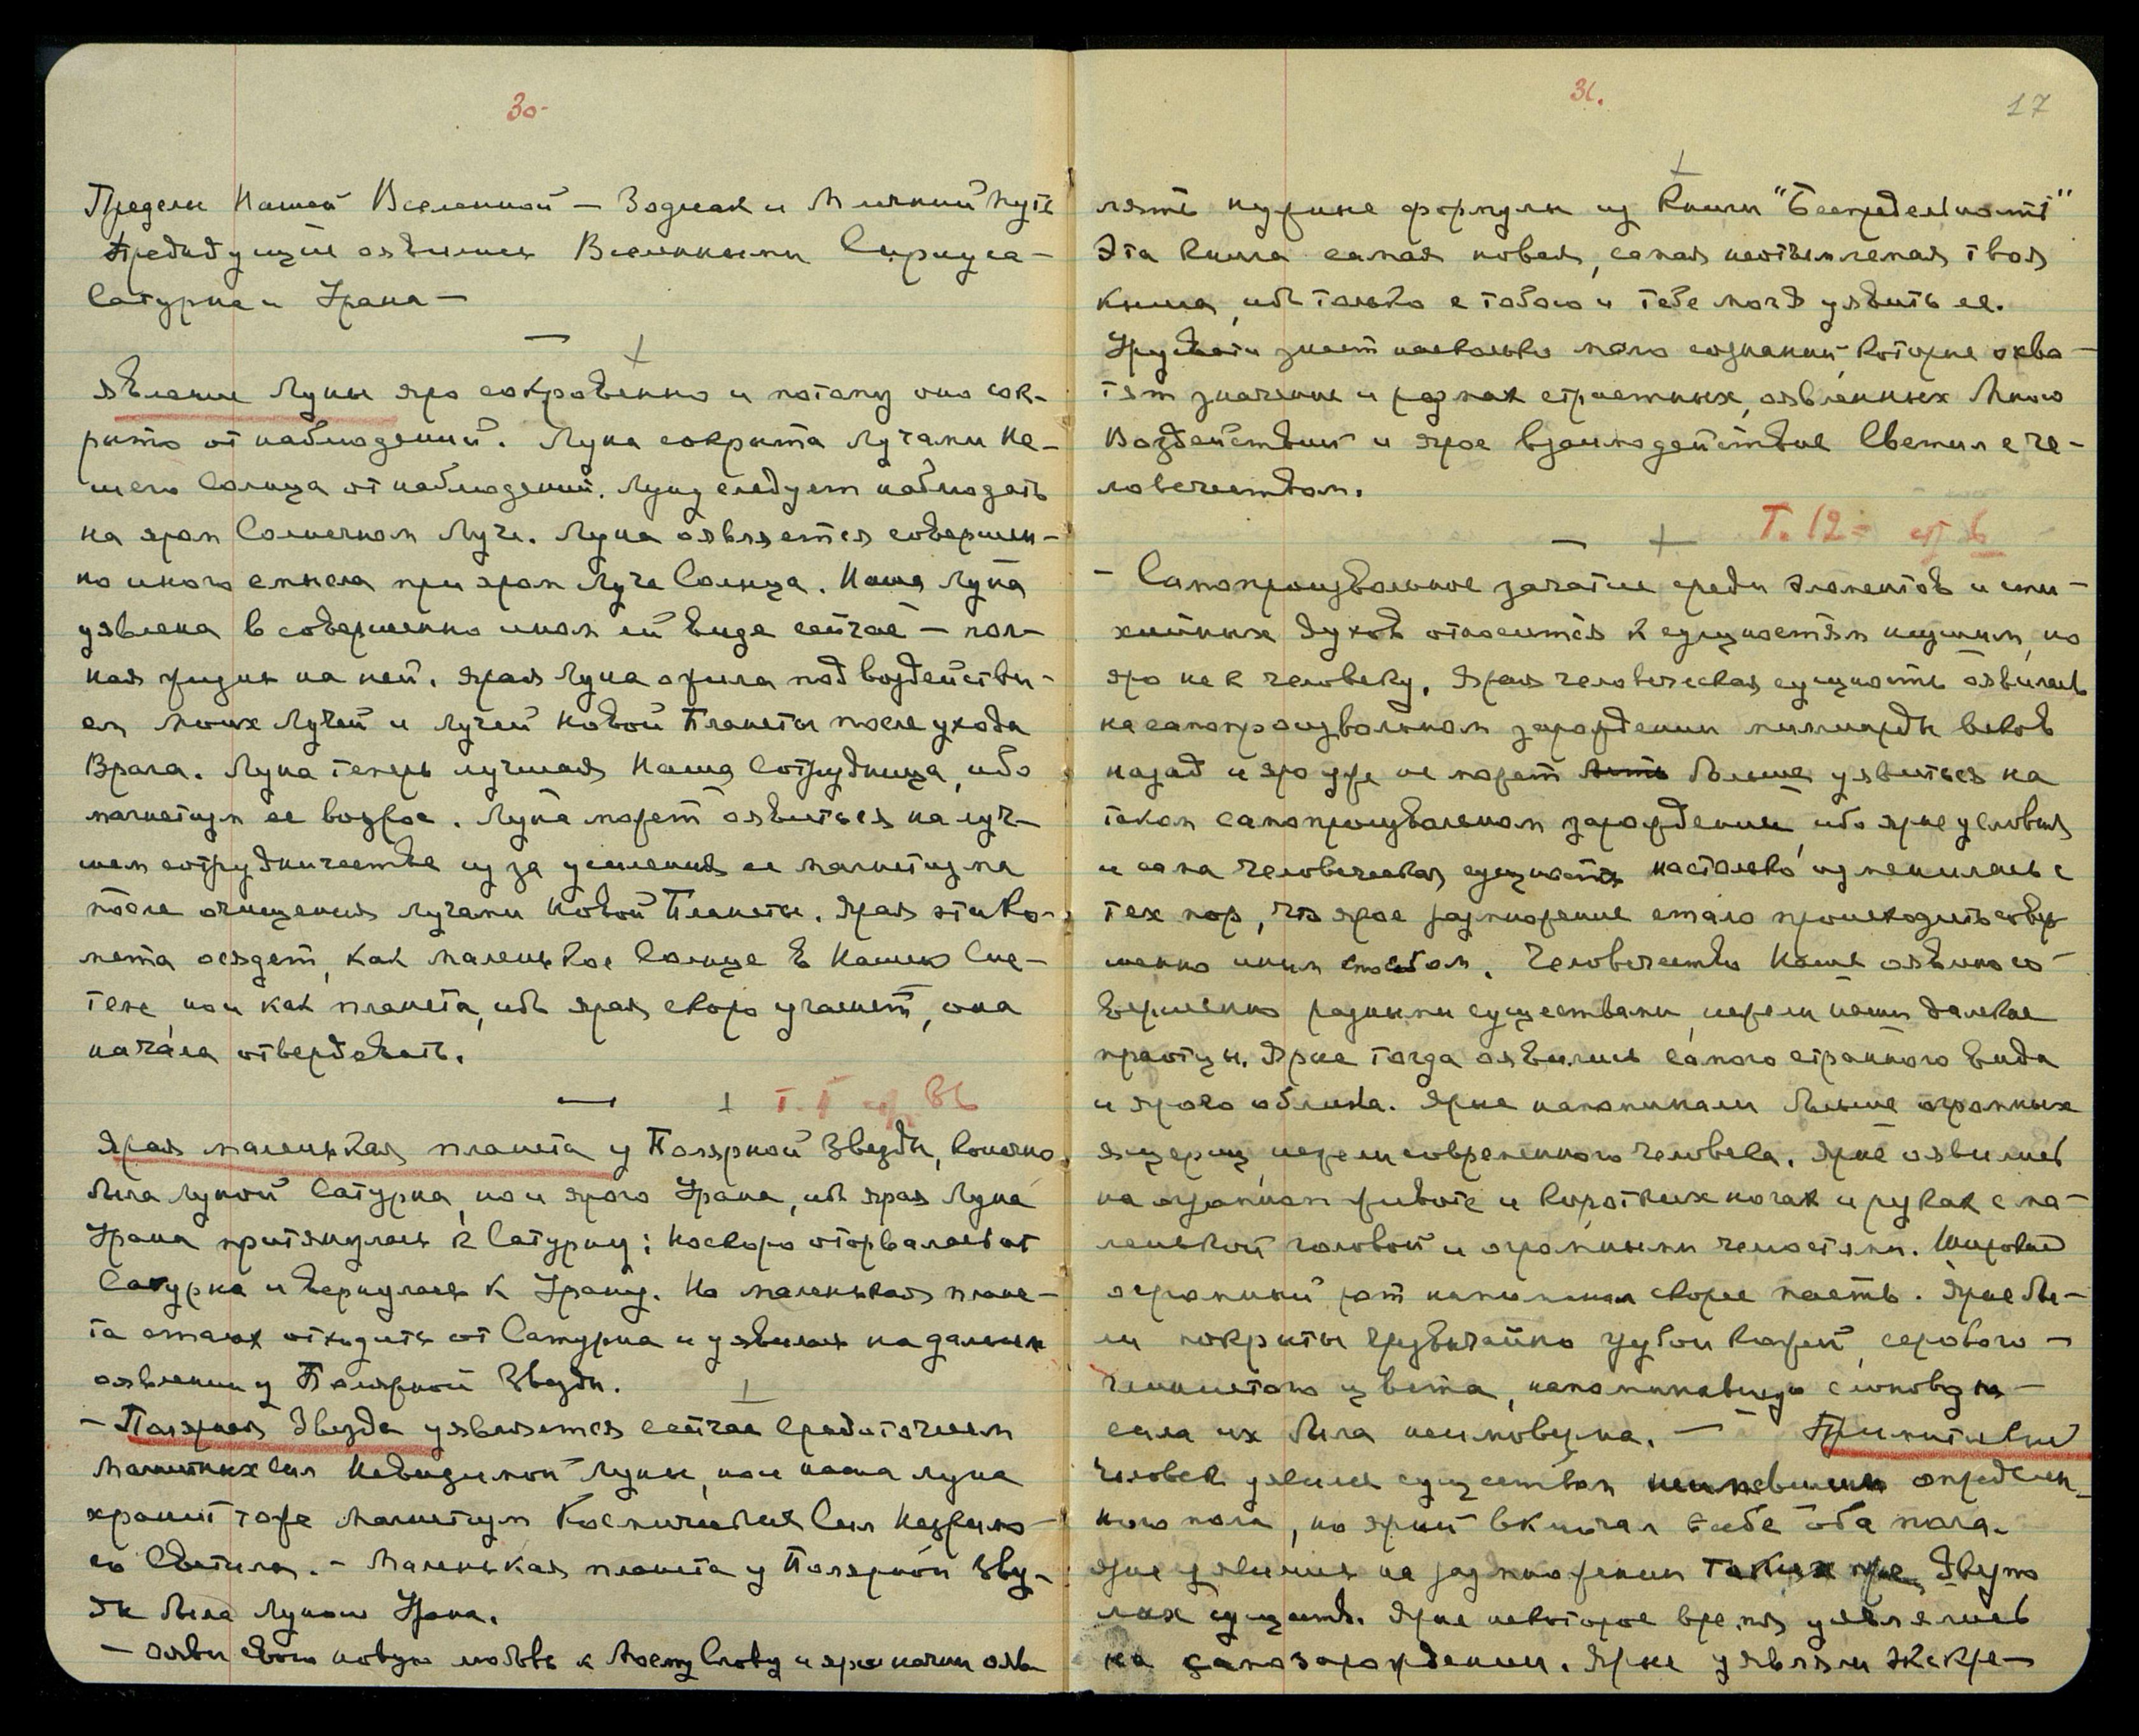 30-
Пределы Нашей Вселенной — Зодиак и Млечный Путь
Предыдущие явились Вселенными Сириуса —
Сатурна и Урана —
Явление Луны яро сокровенно и потому оно сок-
рыто от наблюдений. Луна сокрыта лучами На-
шего Солнца от наблюдений. Луну следует наблюдать
на яром Солнечном Луче. Луна оявляется совершен-
но иного смысла при яром Луче Солнца. Наша Луна
уявлена в совершенно ином ей виде сейчас — пол-
ная жизнь на ней. Ярая Луна ожила под воздействи-
ем Моих Лучей и лучей Новой Планеты после ухода
Врага. Луна теперь лучшая Наша Сотрудница, ибо
магнетизм ее возрос. Луна может оявиться на луч-
шем сотрудничестве из за усиления ее магнетизма
после очищения лучами Новой Планеты. Ярая эта ко-
мета осядет, как маленькое Солнце в Нашей Сис-
теме, но и как планета, ибо ярая скоро угаснет, она
начала отвердевать.
Ярая маленькая планета у Полярной Звезды, конечно
была луной Сатурна, но и ярого Урана, ибо ярая Луна
Урана притянулась к Сатурну; но скоро оторвалась от
Сатурна и вернулась к Урану. Но маленькая плане-
та стала отходить от Сатурна и уявилась на дальнем
оявлении у Полярной Звезды.
— Полярная Звезда уявляется сейчас средоточием
Магнитных сил Невидимой Луны, но и наша луна
хранит тоже Магнетизм Космических Сил Незримо-
го Светила. — Маленькая планета у Полярной Звез-
ды была Луною Урана.
— Ояви свою новую любовь к Моему Слову и яро начни ояв-
31.
17
лять нужные формулы из Книги "Беспредельности"
Эта Книга самая новая, самая неотъемлемая твоя
книга, ибо только с тобою и тебе могу уявить ее.
Урусвати знает насколько мало сознаний, которые охва-
тят значение и размах страстных, оявленных Мною
Воздействий и ярое взаимодействие Светил с че-
ловечеством.
Т. 12 = стр
— Самопроизвольное зачатие среди элементов и сти-
хийных духов относится к сущностям низшим, но
яро не к человеку. Ярая человеческая сущность оявилась
на самопроизвольном зарождении миллиарды веков
назад и яро уже не может больше уявиться на
таком самопроизвольном зарождении, ибо ярые условия
и сама человеческая сущность настолько изменилась с
тех пор, что ярое размножение стало происходить совер
шенно иным способом. Человечество Наше оявлено со-
вершенно разными существами, нежели наши далекие
праотцы. Ярые тогда оявились самого странного вида
и ярого облика. Ярые напоминали больше огромных
ящериц, нежели современного человека. Ярые оявились
на огромном животе и коротких ногах и руках с ма-
ленькой головой и огромными челюстями. Широкий
огромный рот напоминал скорее пасть. Ярые бы-
ли покрыты чрезвычайно грубой кожей, серовато —
землистого цвета, напоминавшую слоновую —
сила их была неимоверна. — Примитивный
человек уявился существом неимевшим определен-
ного пола, но ярый включал в себе оба пола.
Ярые уявились на размножении таких же двупо
лых существ. Ярые некоторое время уявлялись
на самозарождении. Ярые уявляли экскре-